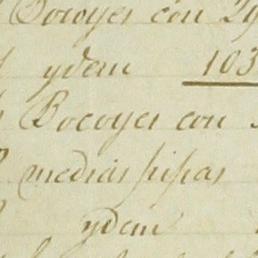 Bocoyes con
ydem 103
Bocoyes con
medias pipas
ydem